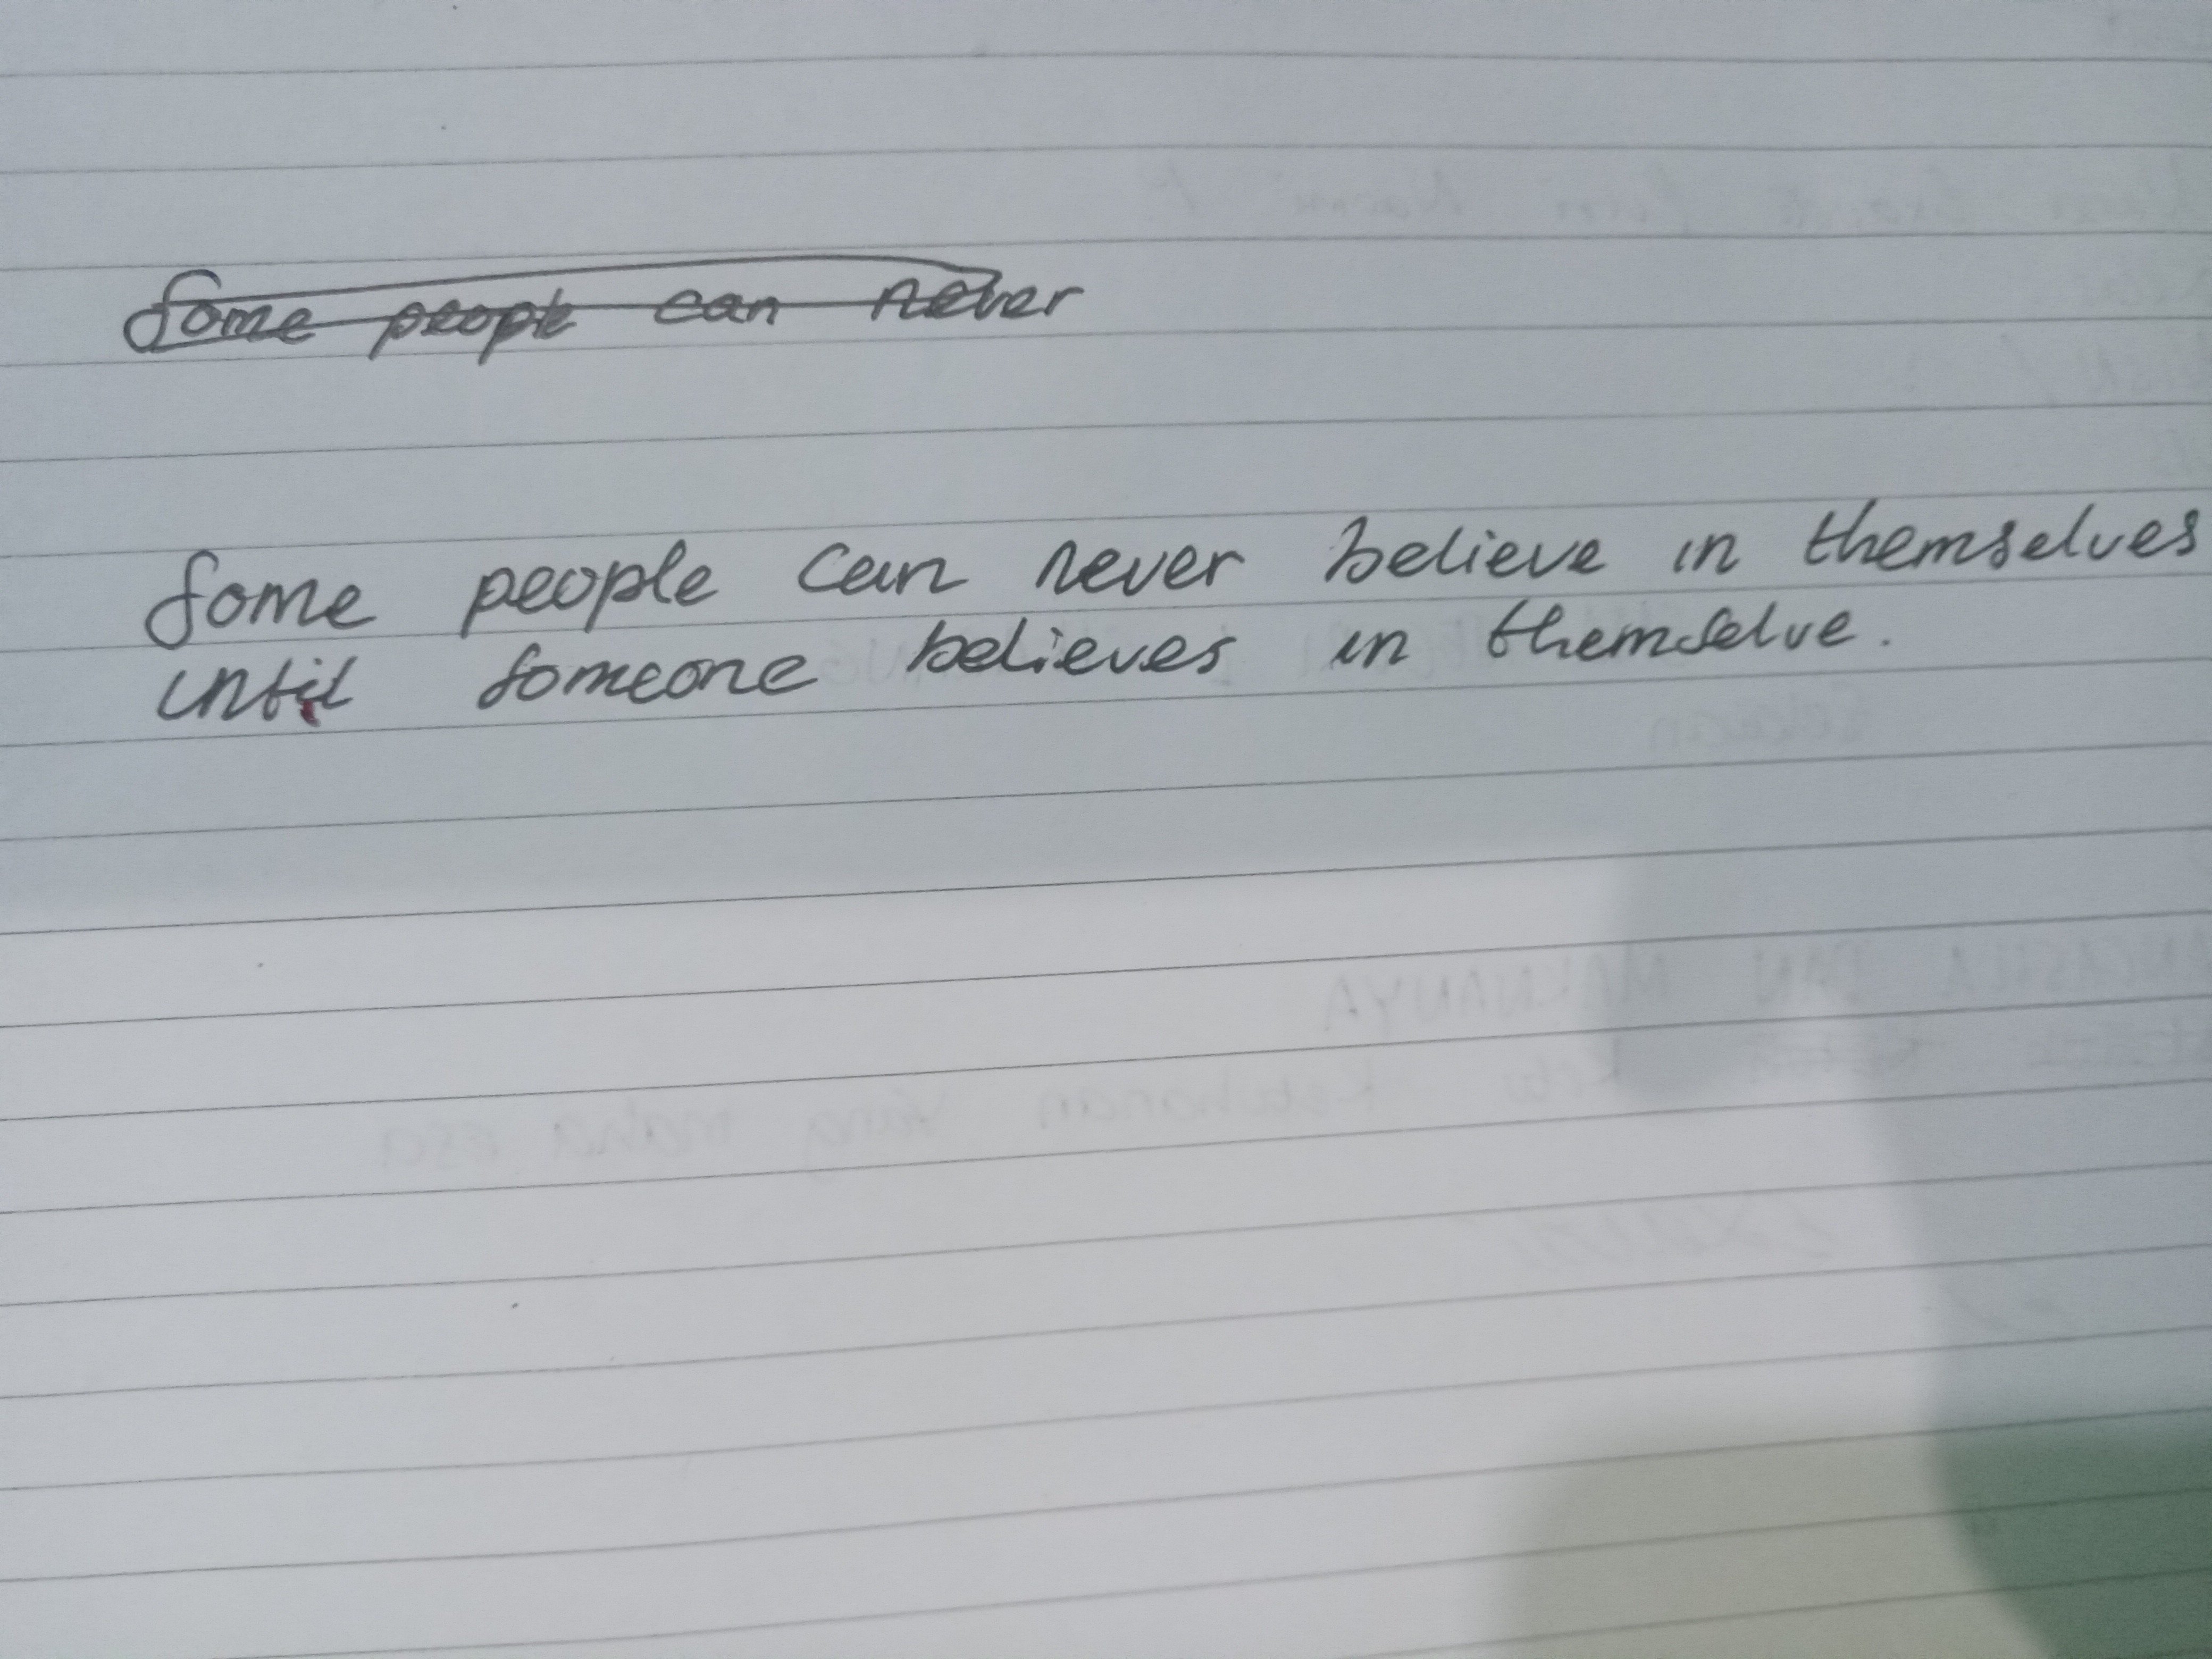 Some people can never
Some people can never believe in themselves
until someone believes in themselve.